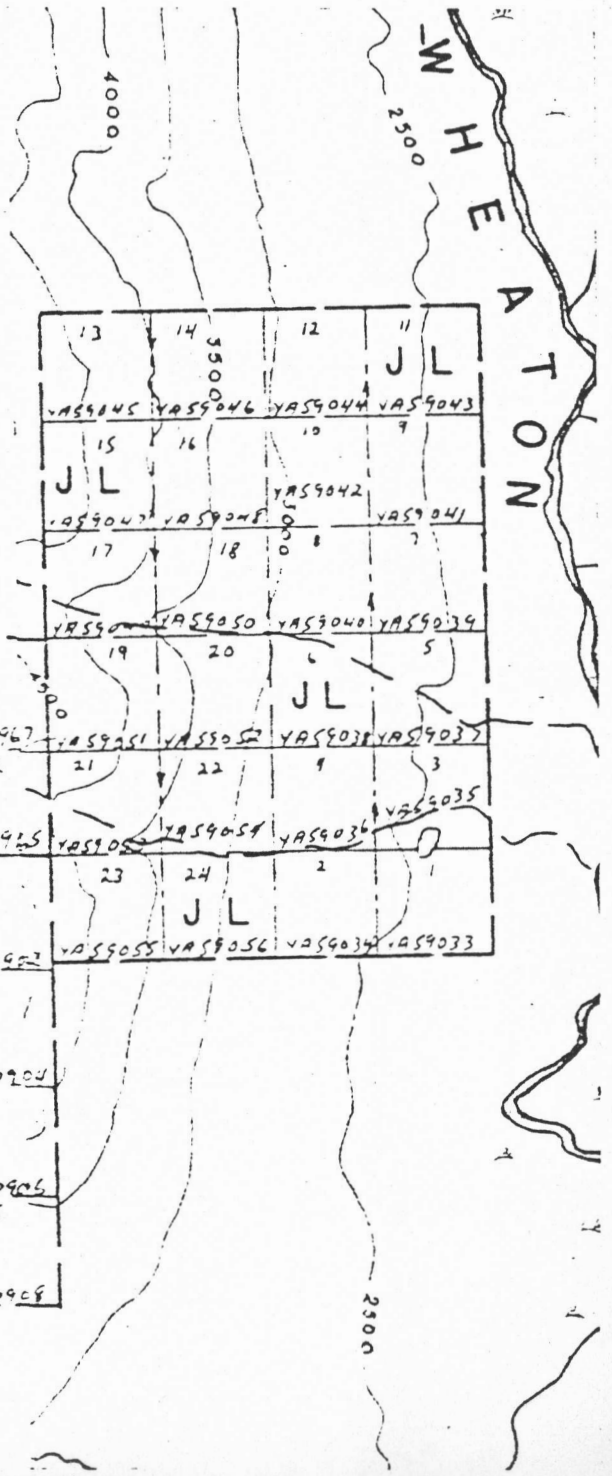 WHEATON
4000
2500
13 14 12 11
3500
J L
YA59045 YA59046 YA59044 YA59043
15 16 10 9
J L
YA59042
YA59047 YA59048 YA59041
3000
17 18 8 7
YA59050 YA59040 YA59039
19 20 6 5
J L
YA59051 YA59052 YA59038 YA59037
21 22 3
YA59035
YA59054 YA59036
23 24 2 1
J L
YA59055 YA59056 YA59034 YA59033
2500